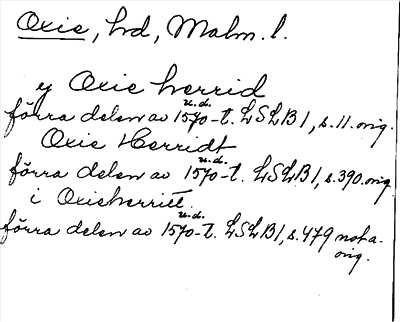 Oxie, hd, Malm. l.
y Oxie herrid
u.d.
förra delen av 1570-t. LSLB1, s.11. orig.
Oxie Herridt
u.d.
förra delen av 1570-t. LSLB1, s.390. orig.
i Oxieherritt
u.d.
förra delen av 1570-t. LSLB1, s.479 not a.
orig.